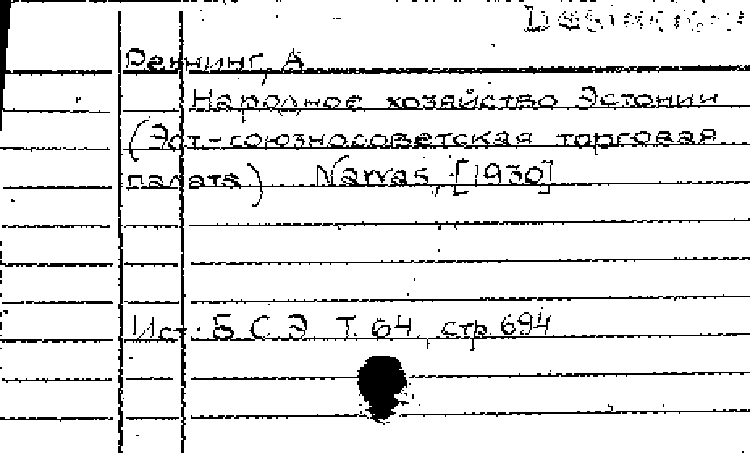 Реннинг, А
Народное хозяйство Эстонии
(Эст.-союзносоветская торговая
палата) Narvas, [1930]
Ист: Б.С.Э. Т. 64, стр. 694